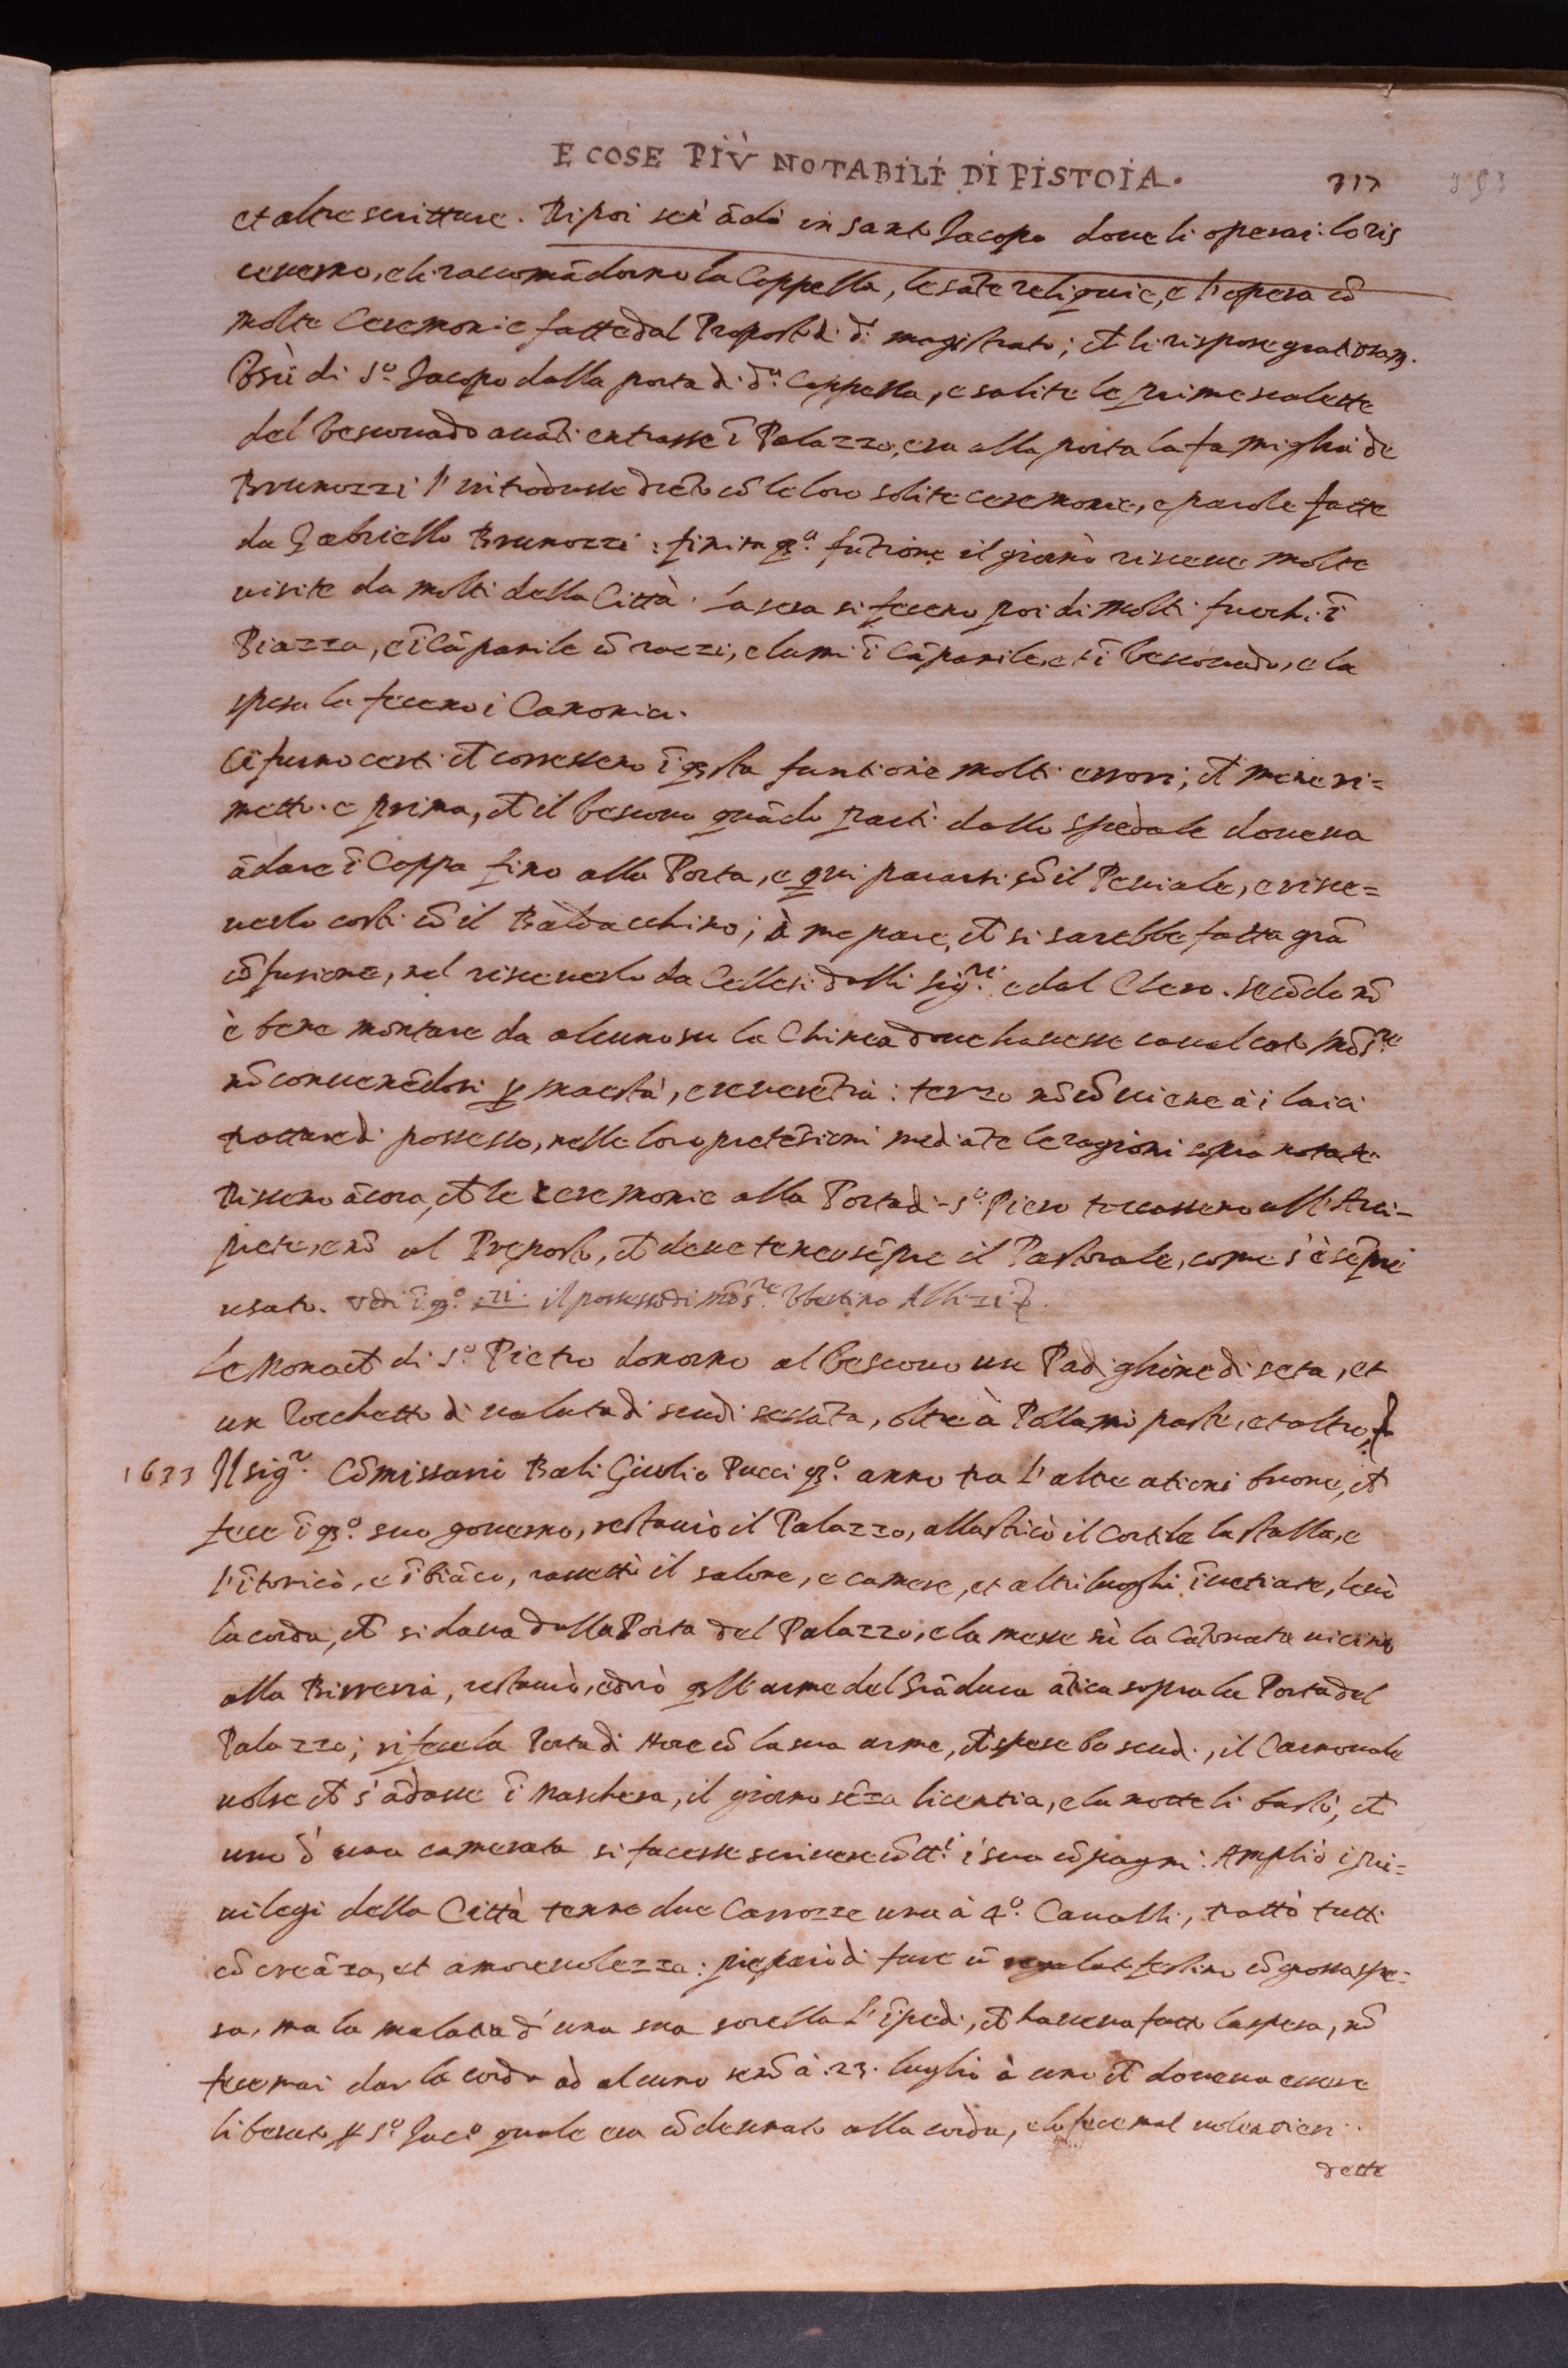 E COSE PIÙ NOTABILI DI PISTOIA.
317
et altre scritture. Di poi se n'ãdò in santo Jacopo doue li operai lo ris
ceuerno, e li raccomãdorno la Cappella, le sãte reliquie, e l'opera cõ
molte Ceremonie fatte dal Proposto di dº magistrato; et li rispose gratiosam.
Uscì di Sº Jacopo dalla porta di dª Cappella, e salite le prime scalette
del Vescouado auãti entrasse ĩ Palazzo, era alla porta la famiglia de
Brunozzi l'introdusse drẽto cõ le loro solite ceremonie, e parole fatte
da Gabriello Brunozzi: finita qª fũtione il giorno riceue molte
uisite da molti della Città. La sera si feceno poi di molti fuochi ĩ
Piazza, e ĩ Cãpanile cõ razzi, e lumi ĩ Cãpanile, et ĩ Vescouado, e la
spesa la feceno i Canonici.
Ci furno certi ch corresseno ĩ qsta funtione molti errori, ch mene ri=
metto. e prima, ch il Vescouo quãdo partì dallo spedale doueua
ãdare ĩ Cappa fino alla Porta, e qui pararsi cõ il Peuiale, e rice=
uerlo costì cõ il Baldacchino; à me pare, ch si sarebbe fatta grã
cõfusione, nel riceuerlo da Cellesi dalli sigri e dal Clero. secõdo nõ
è bene montare da alcuno su la Chinea doue hauesse caualcato Mõsre
nõ conuenẽdosi p maestà, e reuerẽtia: terzo nõ cõuiene à i laici
trattare di possesso, nelle loro pretẽsioni mediãte le ragioni sopra notate.
Disseno ãcora, ch le ceremonie alla Porta di Sº Piero toccasseno all'Arci-
prete, e nõ al Preposto, ch deue tener sẽpre il Pastorale, come s'è sẽpre
usato. Vedi ĩ qº 21. il possesso di mõsre Ubertino Albizi
Le Monach di Sº Pietro donorno al Vescouo un Padiglione di seta, et
un Rocchetto di ualuta di scudi sessãta, oltre à Pollami paste, et altro,
1633 Il sigr Cõmissario Bali Giulio Pucci qº anno tra l'altre ationi buone, ch
fece ĩ qº suo gouerno, restaurò il Palazzo, allastricò il Cortile la stalla, e
l'ĩtonicò, e ĩbiãcò, rassettò il salone, e camere, et altri luoghi ĩuetriate, leuò
la corda, ch si daua dalla Porta del Palazzo, e la messe sù la Catonata uicino
alla Birreria, restaurò, e dorò qll'arme del Grãduca ãtica sopra la Porta del
Palazzo; rifece la Porta di Hore cõ la sua arme, ch spese 60 scudi, il Carnouale
uolse ch s'ãdasse ĩ Maschera, il giorno sẽza licentia, e la notte li bastò, ch
uno d'una camerata si facesse scriuere cõ tti i sua cõpagni. Ampliò i pri=
uilegi della Città tenne due Carrozze una à 4º Caualli, trattò tutti
cõ creãza, et amoreuolezza: preparò di fare ũ regalato festino cõ grossa spe=
sa, ma la malatia d'una sua sorella l'ĩpedì, ch haueua fatto la spesa, nõ
fece mai dar la corda ad alcuno se nõ à 23. luglio à uno ch doueua essere
liberato p Sº Jacº quale era cõdennato alla corda, e lo fece mal uolentieri.
dette